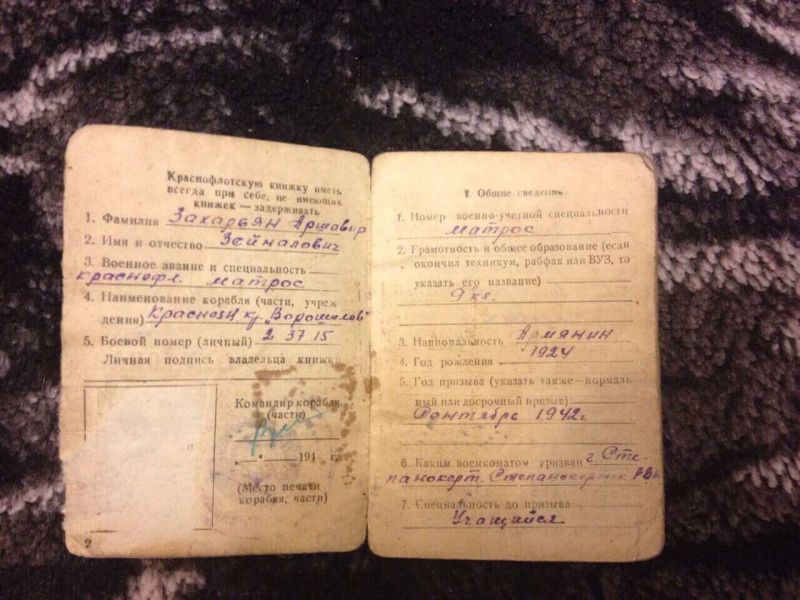 Краснофлотскую книжку иметь
всегда при себе, не имеющих
книжек — задерживать
1. Фамилия Захарьян Аршавир
2. Имя и отчество Зейналович
3. Военное звание и специальность
краснофл. матрос
4. Наименование корабля (части, учреж-
дения) Краснозн кр. „Ворошилов"
5. Боевой номер (личный) 2 37 15
Личная подпись владельца книжки
Командир корабля
(части)
„ " 194 г.
(Место печати
корабля, части)
2
I. Общие сведения
1. Номер военно-учетной специальности
матрос
2. Грамотность и общее образование (если
окончил техникум, рабфак или ВУЗ, то
указать его название)
9 кл.
3. Национальность Армянин
4. Год рождения 1924
5. Год призыва (указать также — нормаль-
ный или досрочный призыв)
Сентябрь 1942г
6. Каким военкоматом призван г. Сте-
панокерт. Степанокертск РВК
7. Специальность до призыва
Учащийся